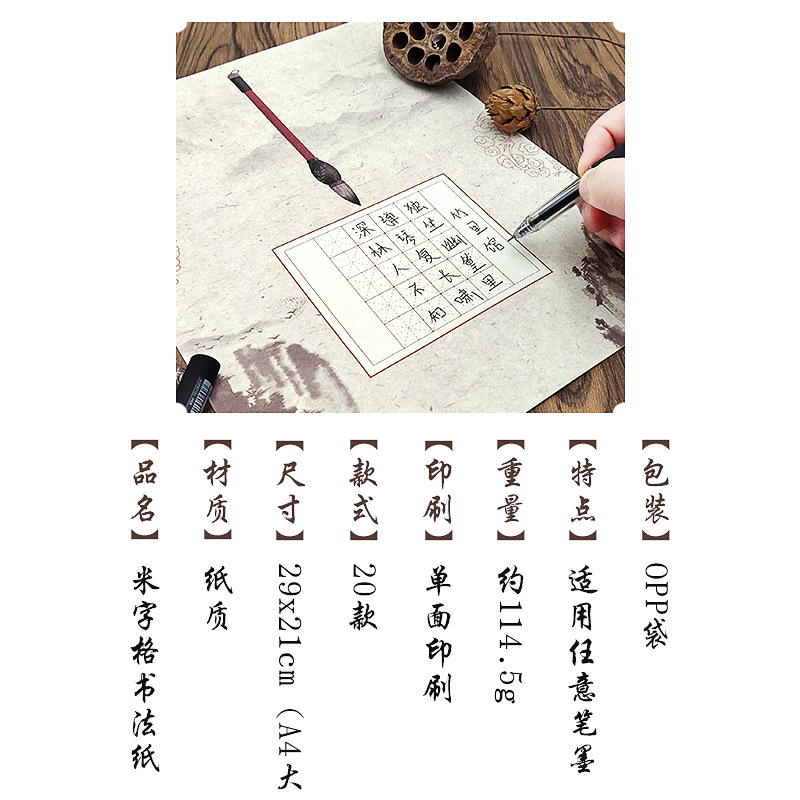 竹里馆
独坐幽篁里
弹琴复长啸
深林人不知
【品名】米字格书法纸
【材质】纸质
【尺寸】29x21cm (A4大
【款式】20款
【印刷】单面印刷
【重量】约114.5g
【特点】适用任意笔墨
【包装】OPP袋